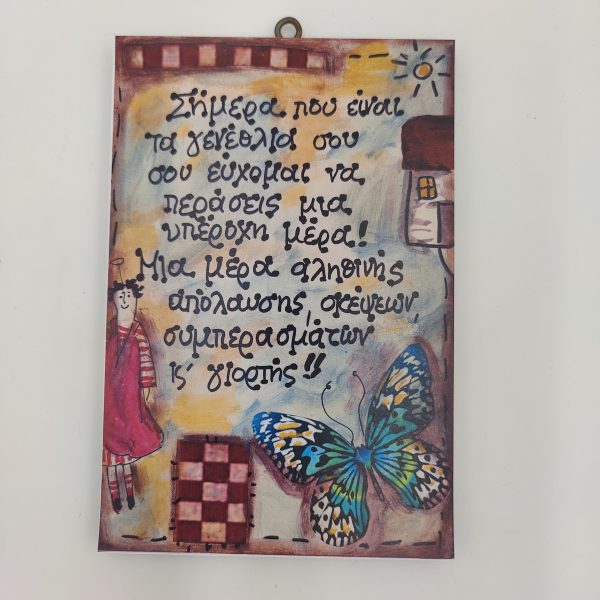 Σήμερα που είναι
τα γενέθλια σου
σου εύχομαι να
περάσεις μια
υπέροχη μέρα!
Μια μέρα αληθινής
απόλαυσης, σκέψεων,
συμπερασμάτων
κ' γιορτής!!